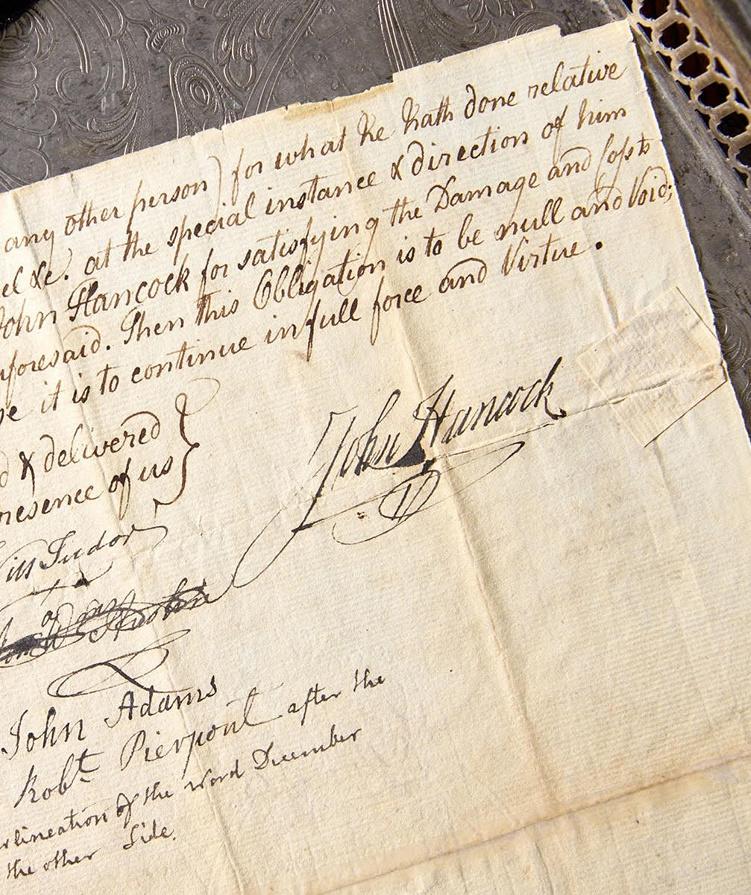 any other person) for what he hath done relative
el &c. at the special instance & direction of him
John Hancock for satisfying the Damage and Costs
aforesaid. Then this Obligation is to be null and Void;
e it is to continue in full force and Virtue.
d & delivered
presence of us
John Hancock
Will Tudor
John Adams
Robt. Pierpont after the
erlineation of the word December
the other Side.